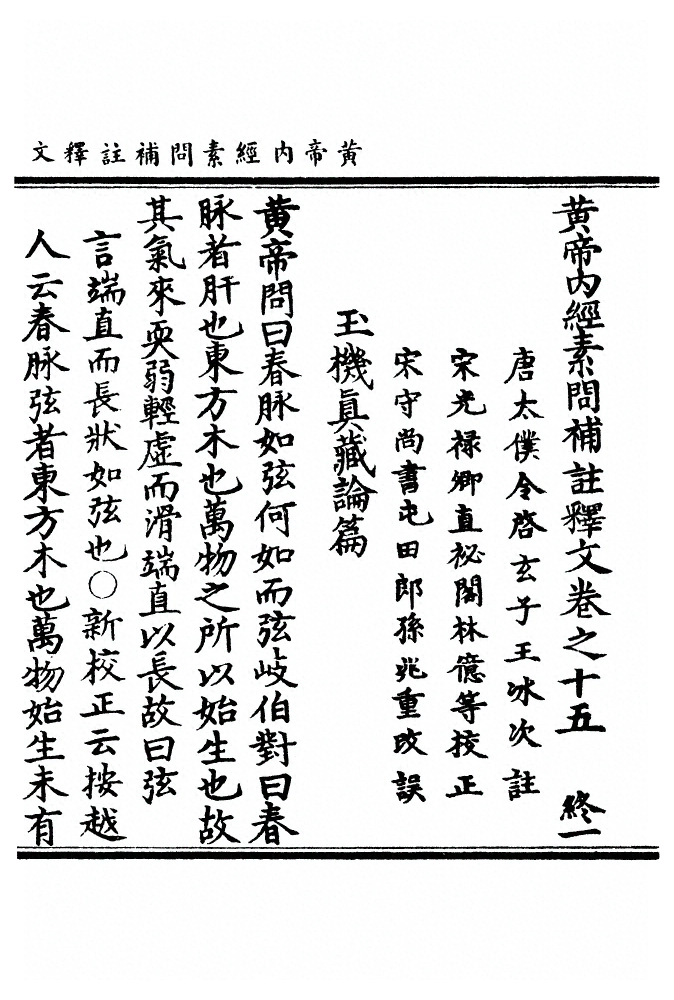 黄帝内經素問補註釋文
黄帝内經素問補註釋文卷之十五　終一
唐太僕令啓玄子王冰次註
宋光禄卿直祕閣林億等校正
宋守尚書屯田郎孫兆重改誤
玉機眞藏論篇
黄帝問曰春脉如弦何如而弦岐伯對曰春
脉者肝也東方木也萬物之所以始生也故
其氣來耎弱輕虛而滑端直以長故曰弦
言端直而長狀如弦也○新校正云按越
人云春脉弦者東方木也萬物始生未有